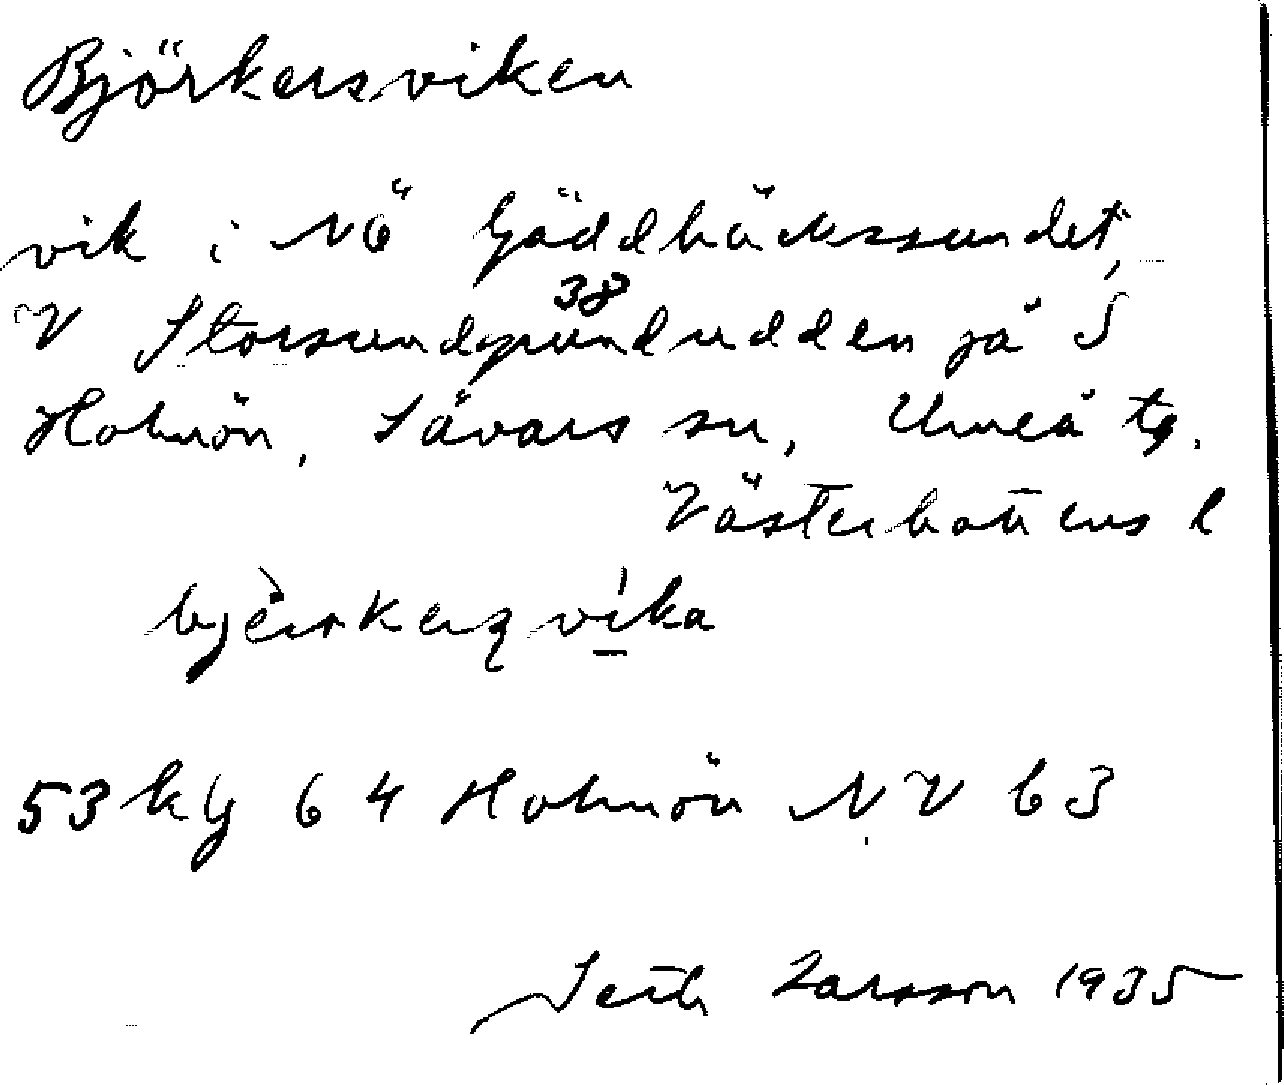 Björkersviken
vik i NÖ Gäddbäckssundet,
V Storsundgrundudden på S
38
Holmön, Sävars sn, Umeå tg.
Västerbottens l
vika
53 kg 64 Holmön NV 63
Seth Larsson 1935